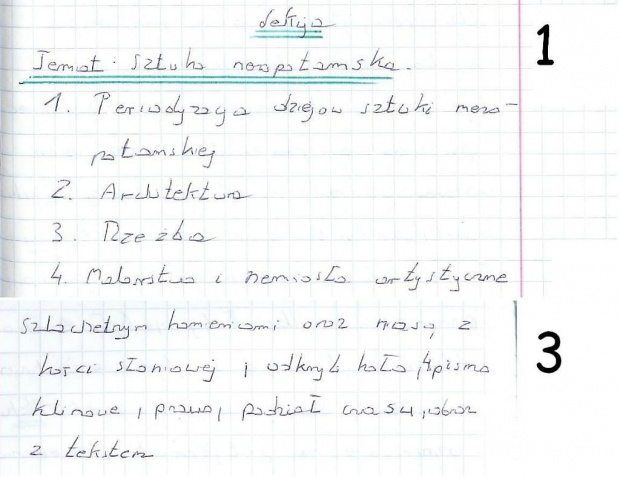 Lekcja
1
Temat: Sztuka mezopotamska.
1. Periodyzacja dziejów sztuki mezo-
potamskiej
2. Architektura
3. Rzeźba
4. Malarstwo i rzemiosło artystyczne
szlachetnym kamieniami oraz masą z
3
kości słoniowej, odkryli koło, pismo
klinowe, prawo, podział czasu, obraz
z tekstem